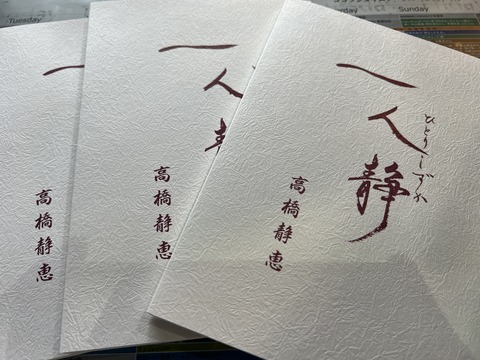 Tuesday
Sunday
一
高橋静恵
一人静
高橋静恵
一人静
ひとりしずか
高橋静恵